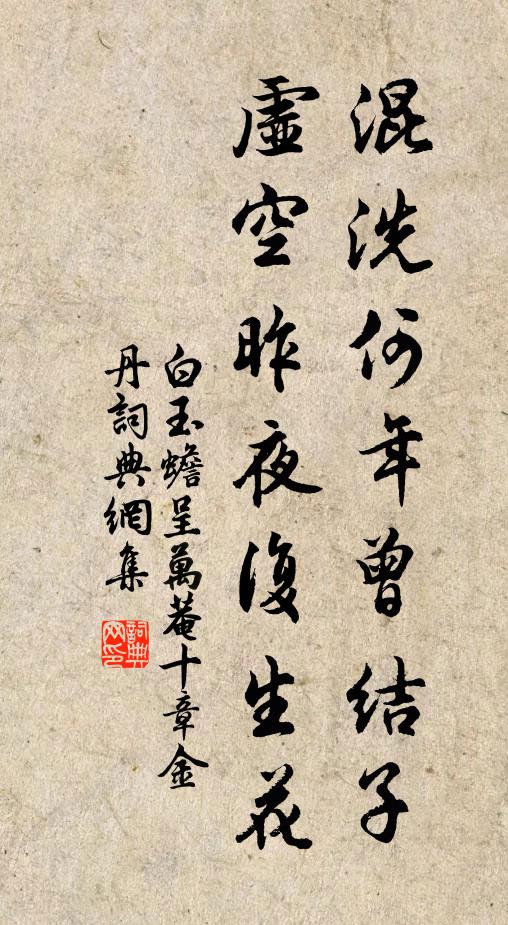 混洗何年曾结子
虚空昨夜復生花
白玉蟾呈萬菴十章金
丹詞典網集
詞典网印